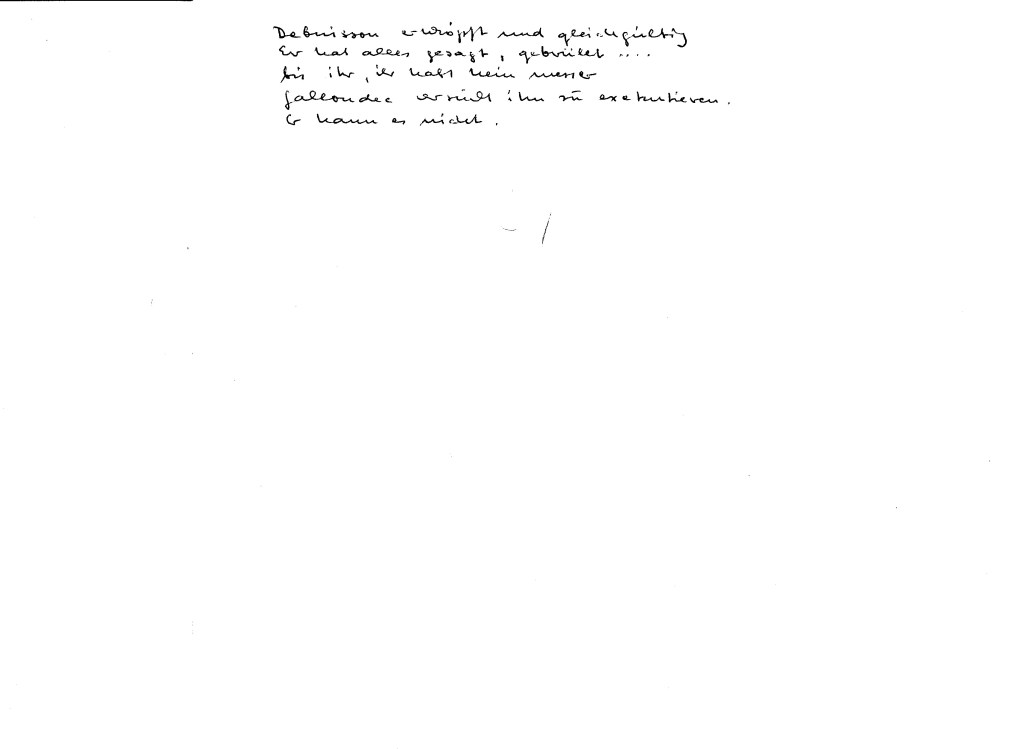 Debuisson erschöpft und gleichgültig
Er hat alles gesagt, gebrüllt ....
bis ihr, ihr habt kein messer
Galloudec versucht ihn zu exekutieren.
Er kann es nicht.